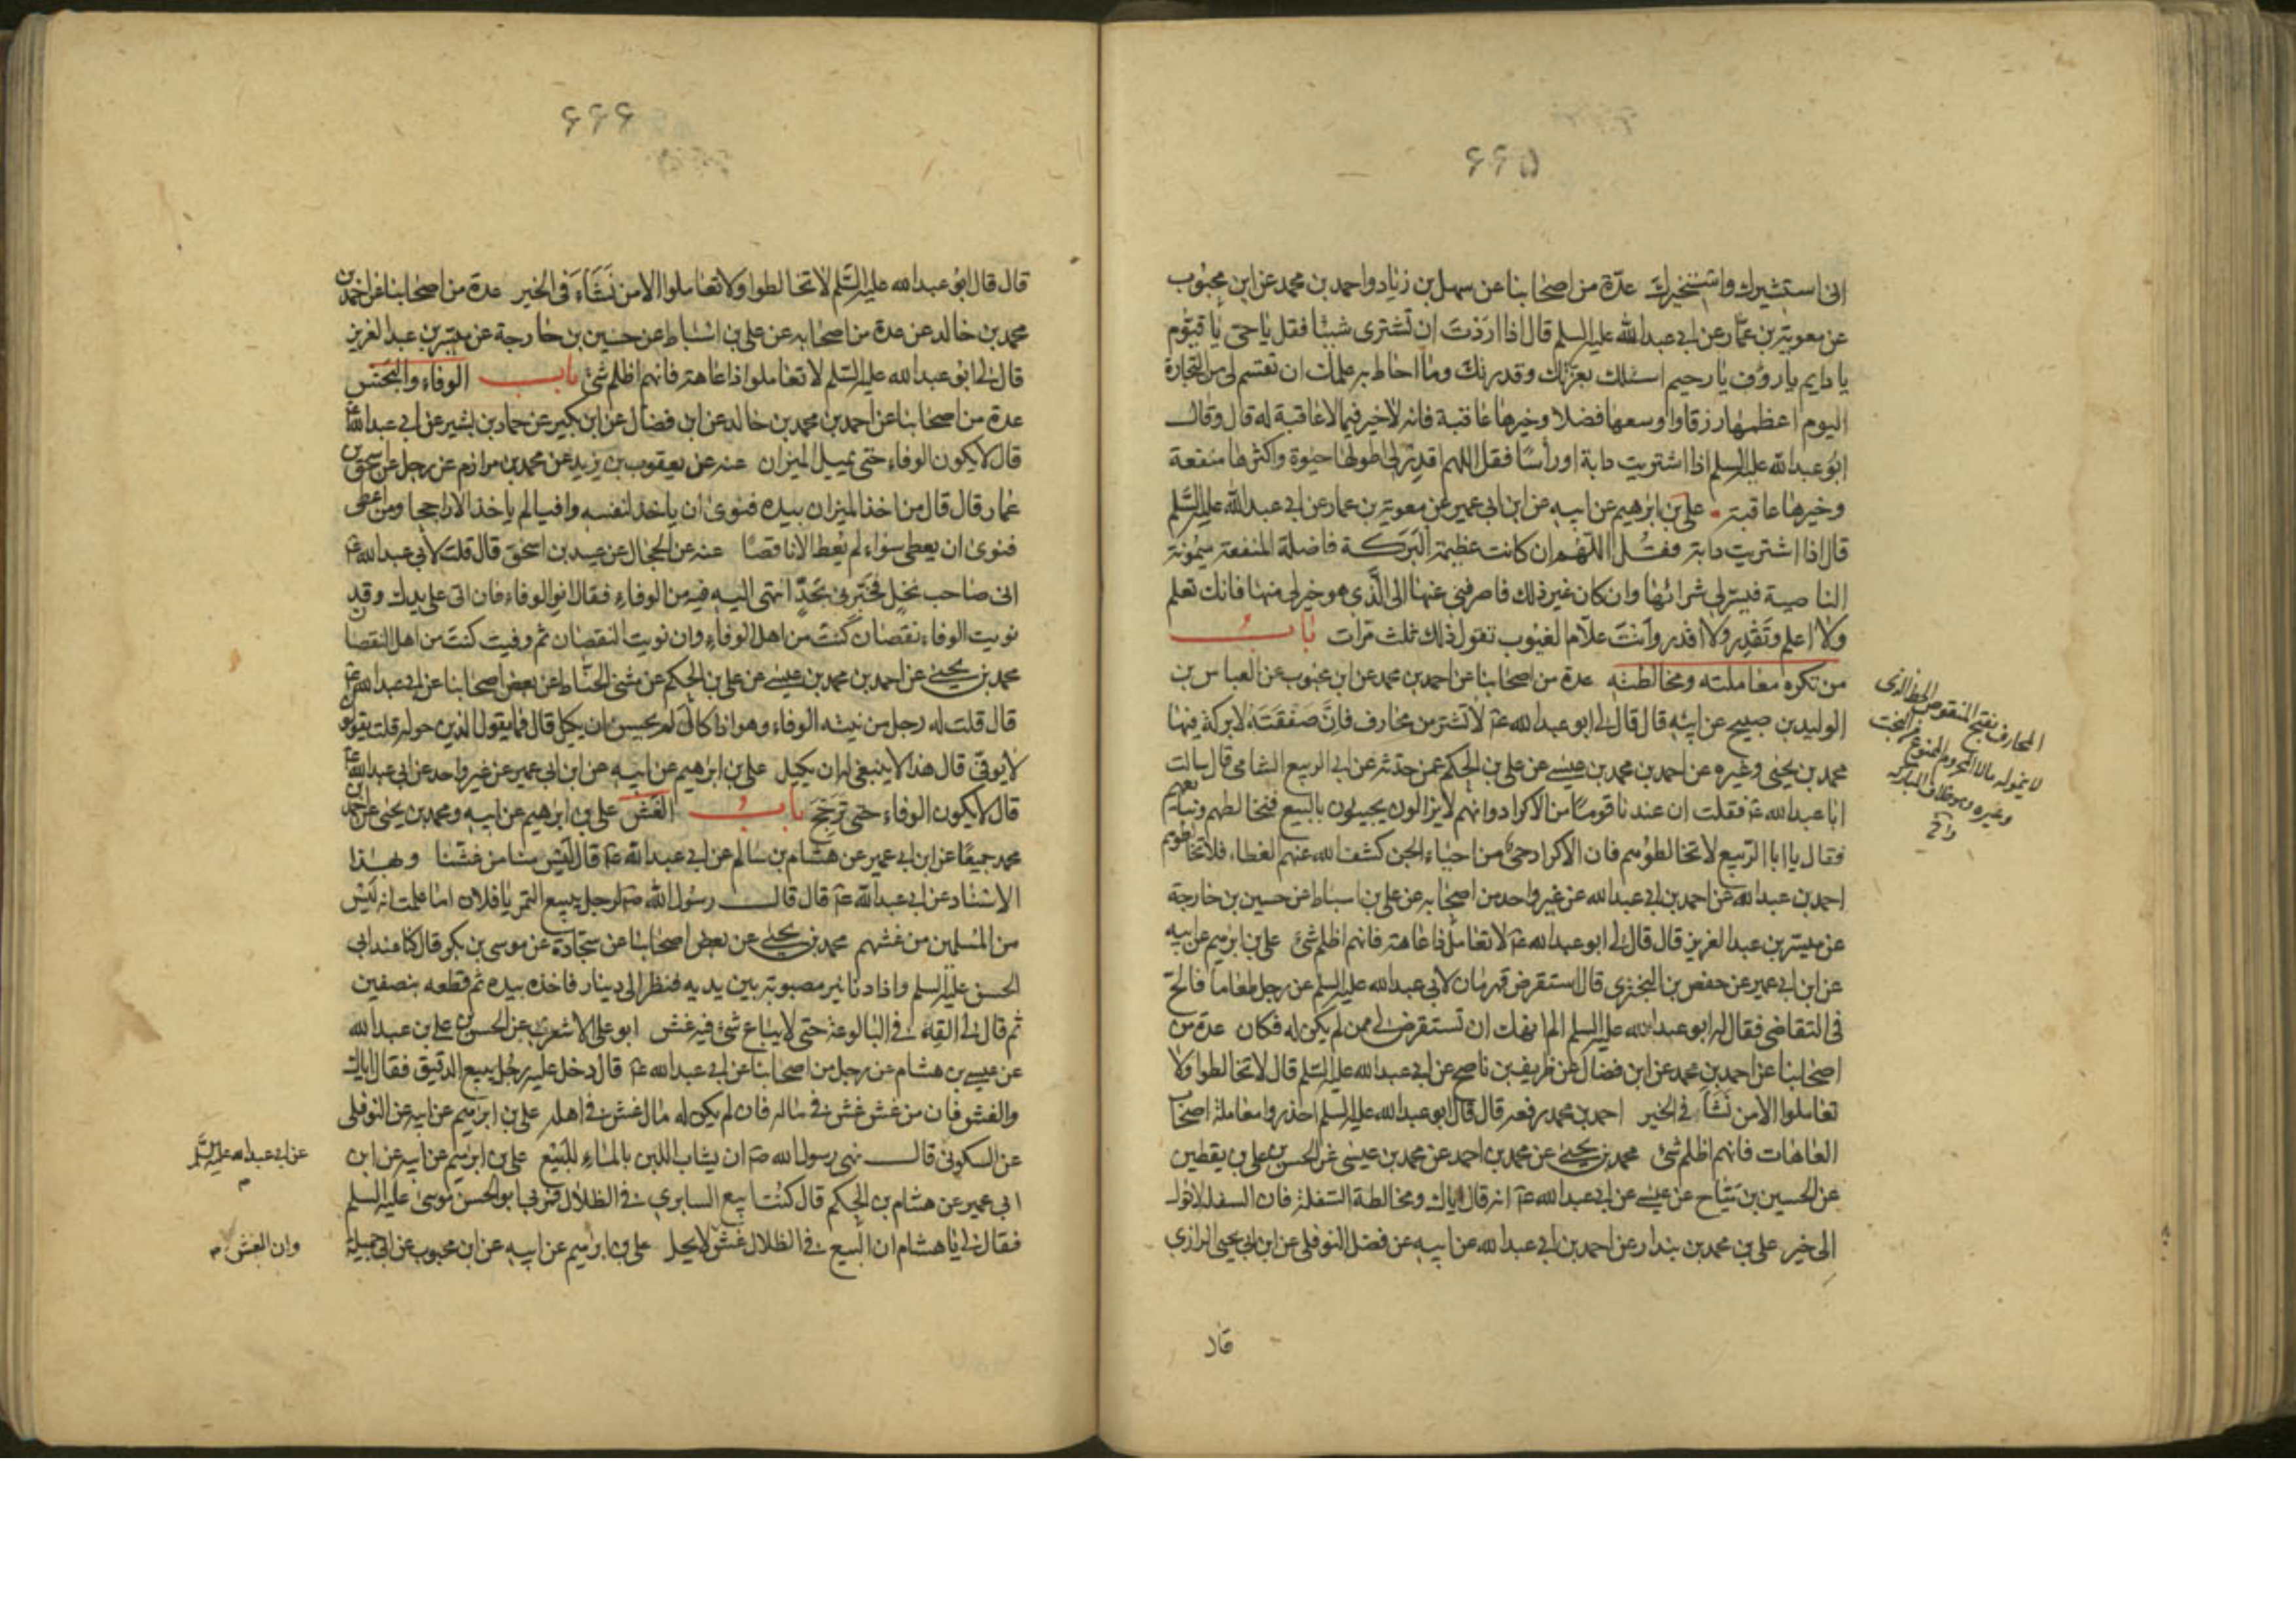 ۶۶۵
انى استشيرك واستخيرك عدّة من اصحابنا عن سهل بن زياد واحمد بن محمد عن ابن محبوب
عن معوية بن عمّار عن ابى عبد الله عليه السلم قال اذا اردت ان تشترى شيئا فقل يا حى يا قيّوم
يا دايم يا رؤف يا رحيم اسئلك بعزّتك وقدرتك وما احاط به علمك ان تقسم لى من التجارة
اليوم اعظمها رزقا واوسعها فضلا وخيرها عاقبة فانه لا خير فيما لا عاقبة له قال وقال
ابو عبد الله عليه السلم اذا اشتريت دابة او رأسًا فقل اللهم اقدر لى اطولها حيوة واكثرها منفعة
وخيرها عاقبة على بن ابرهيم عن ابيه عن ابن ابى عمير عن معوية بن عمار عن ابى عبد الله عليه السّلم
قال اذا اشتريت دابة فقل اللّهم ان كانت عظيمة البركة فاضلة المنفعة ميمونة
الناصية فيسّر لى شرائها وان كان غير ذلك فاصرفنى عنها الى الّذى هو خير لى منها فانك تعلم
ولا اعلم وتقدر ولا اقدر وانت علّام الغيوب تقول ذلك ثلث مرّات باب
من تكره معاملته ومخالطته عدة من اصحابنا عن احمد بن محمد عن ابن محبوب عن العباس بن
الوليد بن صبيح عن ابيه قال قال لى ابو عبد الله عۤ لا تشتر من محارف فانّ صفقته لا بركة فيها
محمد بن يحيى وغيره عن احمد بن محمد بن عيسى عن على بن الحكم عمن حدّثه عن ابى الربيع الشامى قال سالت
ابا عبد الله عۤ فقلت ان عندنا قوما من الاكراد وانهم لا يزالون يجيئون بالبيع فنخالطهم ونبايعهم
فقال يا ابا الرّبيع لا تخالطوهم فان الاكراد حىّ من احياء الجن كشف الله عنهم الغطاء فلا تخالطوهم
احمد بن عبد الله عن احمد بن ابى عبد الله عن غير واحد من اصحابه عن على بن اسباط عن حسين بن خارجة
عن ميسر بن عبد العزيز قال قال لى ابو عبد الله عۤ لا تعامل ذا عاهة فانهم اظلم شئ على بن ابرهيم عن ابيه
عن ابن ابى عمير عن حفص بن البخترى قال استقرض قهرمان لابى عبد الله عليه السلم عن رجل طعاما فالح
فى التقاضى فقال له ابو عبد الله عليه السلم الم انهك ان تستقرض لى ممن لم يكن له فكان عدة من
اصحابنا عن احمد بن محمد عن ابن فضال عن ظريف بن ناصح عن ابى عبد الله عليه السّلم قال لا تخالطوا ولا
تعاملوا الا من نشأ فى الخير احمد بن محمد رفعه قال قال ابو عبد الله عليه السلم احذروا معاملة اصحاب
العاهات فانهم اظلم شئ محمد بن يحيى عن محمد بن احمد عن محمد بن عيسى عن الحسن بن على بن يقطين
عن الحسين بن ميّاح عن عيسى عن ابى عبد الله عۤ انه قال اياك ومخالطة السّفلة فان السفلة لا تؤل
الى خير على بن محمد بن بندار عن احمد بن ابى عبد الله عن ابيه عن فضل النوفلى عن ابن ابى يحيى الرازى
قال
المحارف بفتح المنقوص الحظ الذى
لا ينمو له مال المحروم الممنوع من البخت
وغيره وهو خلاف المبارك
۶۶۶
قال قال ابو عبد الله عليه السّلم لا تخالطوا ولا تعاملوا الا من نشاء فى الخير عدة من اصحابنا عن احمد بن
محمد بن خالد عن عدة من اصحابه عن على بن اسباط عن حسين بن خارجة عن ميسر بن عبد العزيز
قال لى ابو عبد الله عليه السّلم لا تعاملوا ذا عاهة فانهم اظلم شئ باب الوفاء والبخس
عدة من اصحابنا عن احمد بن محمد بن خالد عن ابن فضال عن ابن بكير عن حماد بن بشير عن ابى عبد الله عۤ
قال لا يكون الوفاء حتى يميل الميزان عنه عن يعقوب بن يزيد عن محمد بن مرازم عن رجل عن اسحق بن
عمار قال قال من اخذ الميزان بيده فنوى ان ياخذ لنفسه وافيا لم ياخذ الا راجحا ومن اعطى
فنوى ان يعطى سواء لم يعط الا ناقصًا عنه عن الحجال عن عبيد بن اسحق قال قلت لابى عبد الله عۤ
انى صاحب نخل فخبّرنى بحدّ انتهى اليه فيه من الوفاء فقال انو الوفاء فان اتى على يدك وقد
نويت الوفاء نقصان كنت من اهل الوفاء وان نويت النقصان ثم وفيت كنت من اهل النقصان
محمد بن يحيى عن احمد بن محمد بن عيسى عن على بن الحكم عن مثنى الحنّاط عن بعض اصحابنا عن ابى عبد الله عۤ
قال قلت له رجل من نيته الوفاء وهو اذا كال لم يحسن ان يكيل قال فما يقول الذين حوله قلت يقولون
لا يوفّى قال هذا لا ينبغى له ان يكيل على بن ابرهيم عن ابيه عن ابن ابى عمير عن غير واحد عن ابى عبد الله عۤ
قال لا يكون الوفاء حتى ترجح باب الغش على بن ابرهيم عن ابيه ومحمد بن يحيى عن احمد بن
محمد جميعًا عن ابن ابى عمير عن هشام بن سالم عن ابى عبد الله عۤ قال ليس منا من غشّنا وبهذا
الاسناد عن ابى عبد الله عۤ قال قال رسول الله صۤ لرجل يبيع التمر يا فلان اما علمت انه ليس
من المسلمين من غشهم محمد بن يحيى عن بعض اصحابنا عن سجّادة عن موسى بن بكر قال كنا عند ابى
الحسن عليه السلم واذا دنانير مصبوبة بين يديه فنظر الى دينار فاخذه بيده ثم قطعه بنصفين
ثم قال لى القه فى البالوعة حتى لا يباع شئ فيه غش ابو على الاشعرى عن الحسن بن على بن عبد الله
عن عيسى بن هشام عن رجل من اصحابنا عن ابى عبد الله عۤ قال دخل عليه رجل يبيع الدقيق فقال اياك
والغش فان من غش غش فى ماله فان لم يكن له مال غش فى اهله على بن ابرهيم عن ابيه عن النوفلى
عن السكونى قال نهى رسول الله صۤ ان يشاب اللبن بالماء للبيع على بن ابرهيم عن ابيه عن ابن
ابى عمير عن هشام بن الحكم قال كنت ابيع السابرى فى الظلال فمر بى ابو الحسن موسى عليه السلم
فقال لى يا هشام ان البيع فى الظلال غش لا يحل على بن ابرهيم عن ابيه عن ابن محبوب عن ابى جميلة
عن ابى عبد الله عليه السّلم
م
وان الغش م